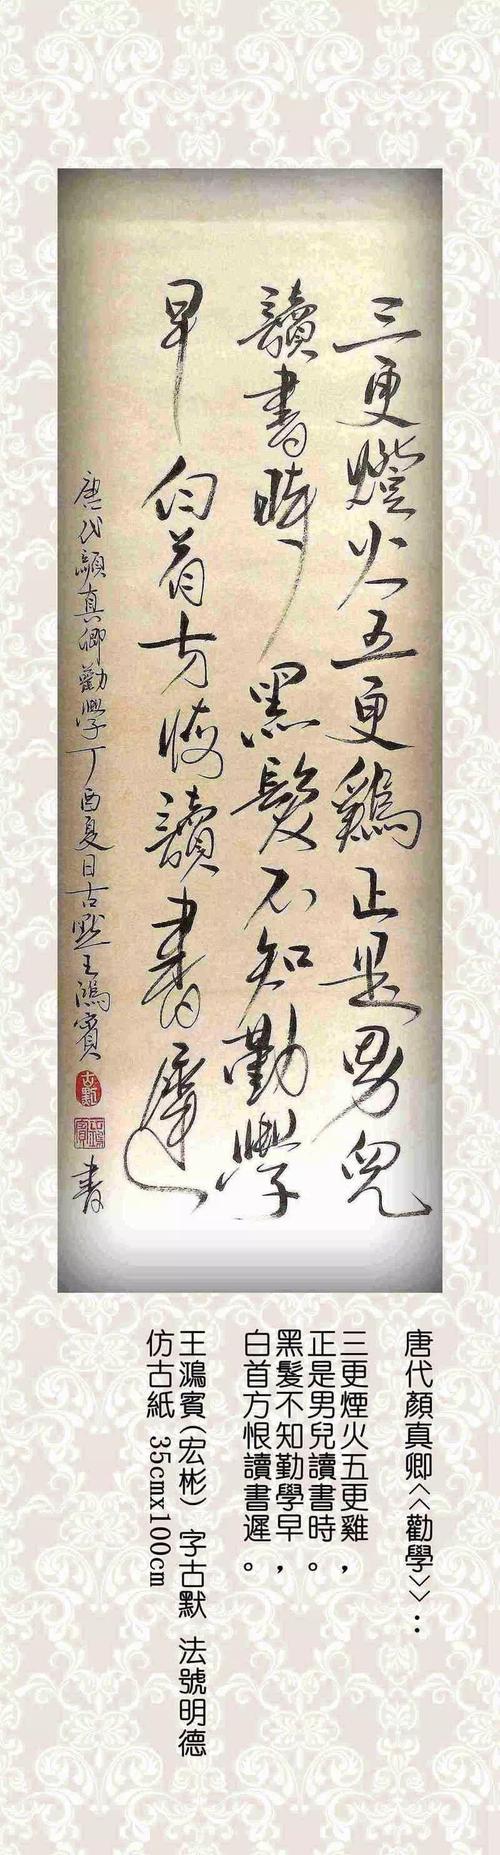 三更燈火五更鷄正是男兒
讀書時黑髮不知勤學
早白首方悔讀書遲
唐代顏真卿勸學丁酉夏日古默王鴻賓
古默
書
唐代顏真卿<<勸學>>：
三更煙火五更雞，
正是男兒讀書時。
黑髮不知勤學早，
白首方恨讀書遲。
王鴻賓(宏彬) 字古默 法號明德
仿古紙 35cmx100cm